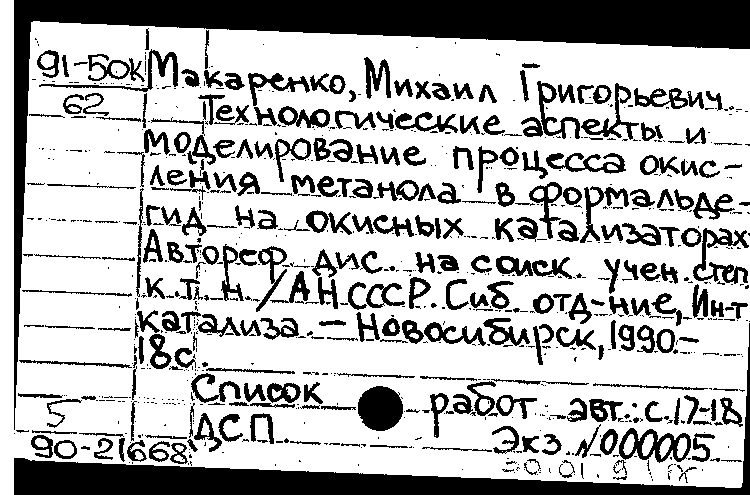 91-50К Макаренко, Михаил Григорьевич
62 Технологические аспекты и
моделирование процесса окис-
ления метанола в формальде-
гид на окисных катализаторах
Автореф. дис. на соиск. учен. степ
к.т.н. / АН СССР. Сиб. отд-ние, Ин-т
катализа. — Новосибирск, 1990.—
18с.
Список работ авт.: с.17-18
5 ДСП. Экз. №000005.
90-21668
30.01.91